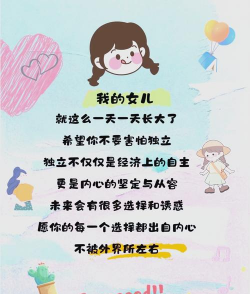 我的女儿
就这么一天一天长大了
希望你不要害怕独立
独立不仅仅是经济上的自主
更是内心的坚定与从容
未来会有很多选择和诱惑
愿你的每一个选择都出自内心
不被外界所左右